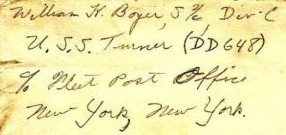 William H. Boyer, S 2/c Div-C
U.S.S. Turner (DD648)
c/o Fleet Post Office
New York, New York.